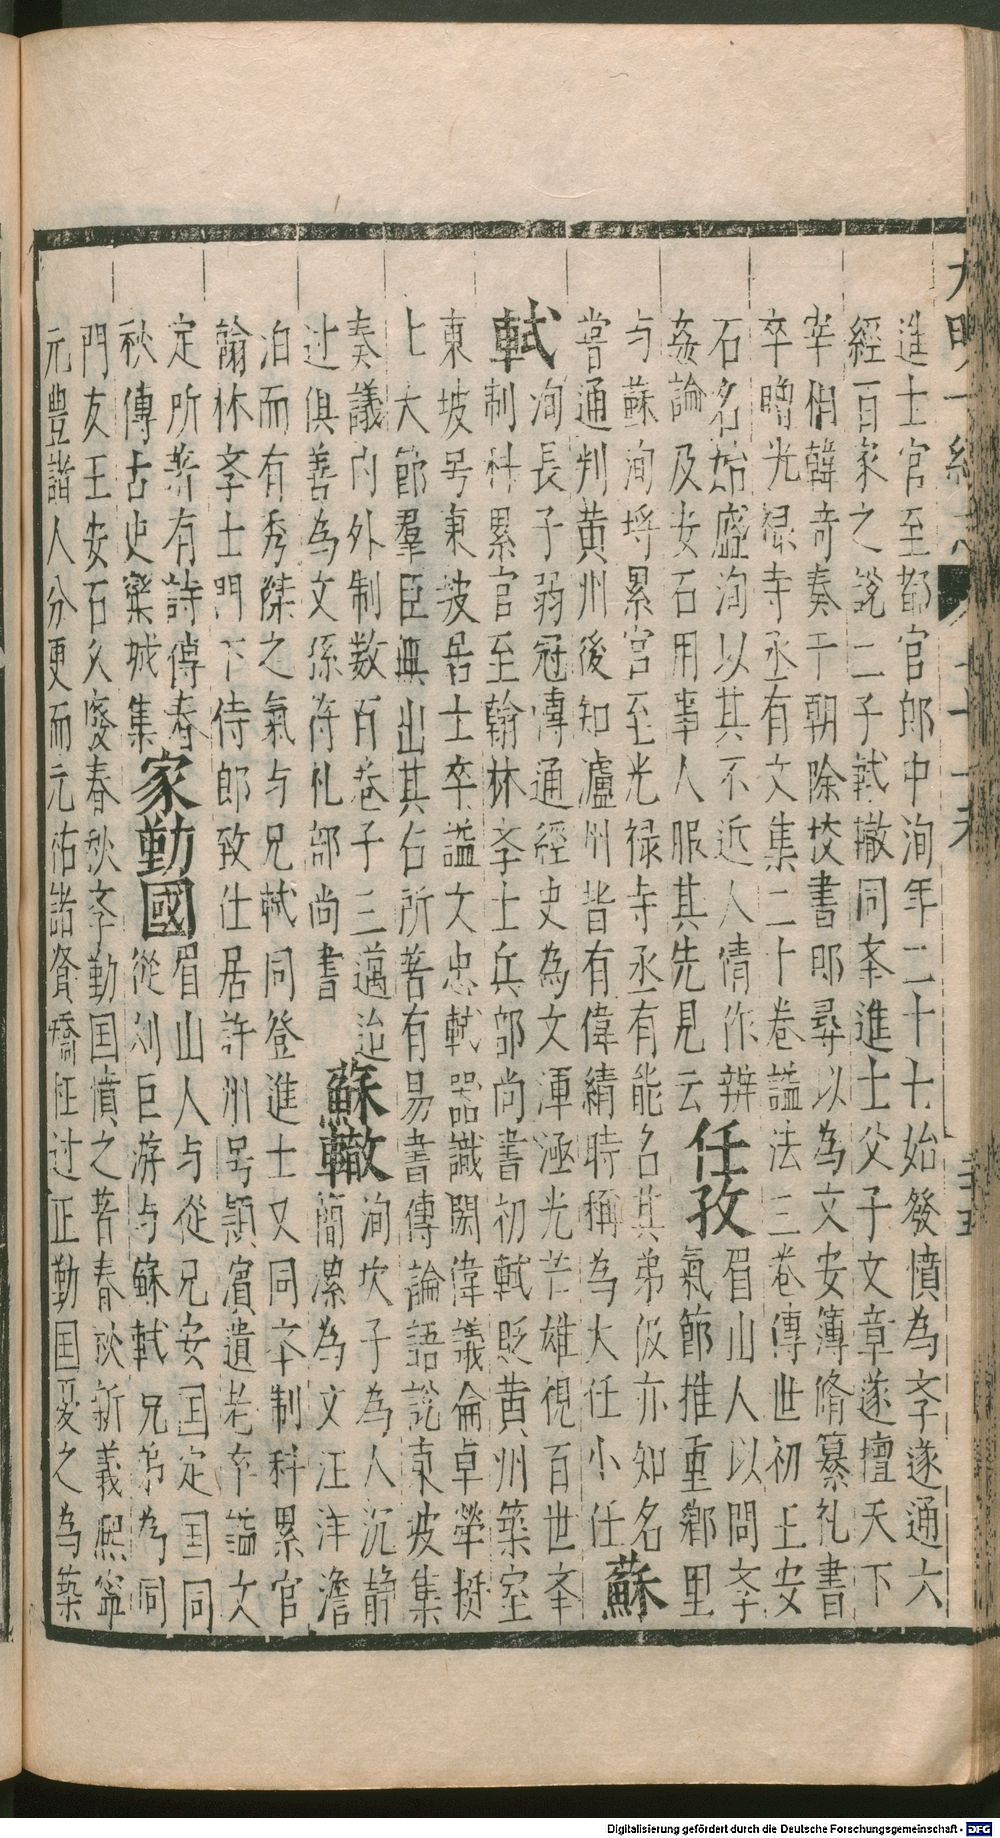 進士官至都官郎中洵年二十七始發憤為斈遂通六
經百家之說二子軾轍同奉進士父子文章遂擅天下
宰相韓奇奏于朝除校書郎尋以為文安簿脩纂礼書
卒贈光祿寺丞有文集二十卷謚法三卷傳世初王安
石名始盛洵以其不近人情作辨
姦論及安石用事人服其先見云 任孜 眉山人以問斈氣節推重鄉里
与蘇洵埒累官至光禄寺丞有能名其弟伋亦知名
嘗通判黄州後知瀘州皆有偉績時稱為大任小任 蘇
軾 洵長子弱冠慱通經史為文渾涵光芒雄視百世夲
制科累官至翰林斈士兵部尚書初軾貶黄州築室
東坡号東坡居士卒謚文忠軾器識閎偉議倫卓犖挺
七大節羣臣無出其右所著有易書傳論語說東坡集
奏議内外制数百卷子三邁迨
过俱善為文孫符礼部尚書 蘇轍 洵次子為人沉静簡潔為文汪洋澹
泊而有秀傑之氣与兄軾同登進士又同夲制科累官
翰林斈士門下侍郎致仕居許州号頴濱遺老卒謚文
定所著有詩傳春
秋傳古史欒城集 家勤國 眉山人与從兄安国定国同從刘巨游与蘇軾兄弟為同
門友王安石久廢春秋斈勤国憤之著春秋新義熙寧
元豊諸人分更而元祐諸賢矯枉过正勤国憂之為築
大明一統志 七十一夲